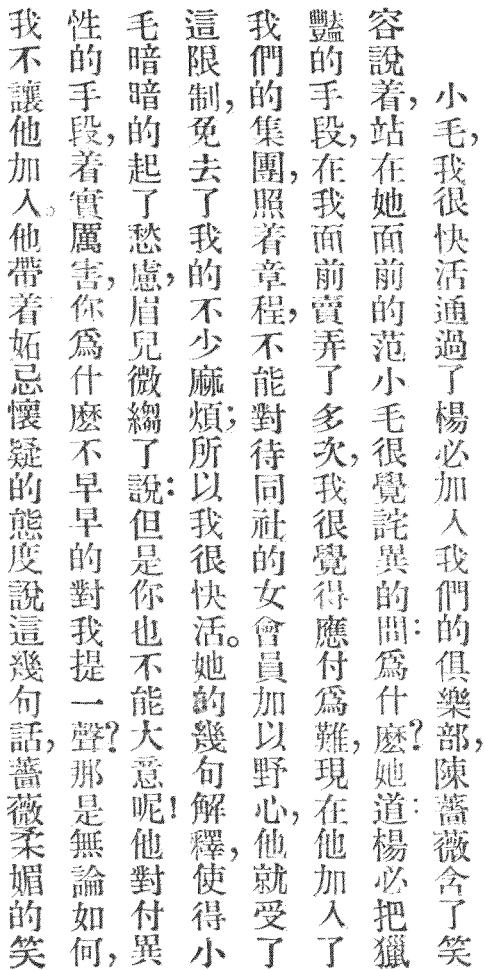 小毛，我很快活通過了楊必加入我們的俱樂部，陳薔薇含了笑
容說着，站在她面前的范小毛很覺詫異的問：爲什麼？她道：楊必把獵
豔的手段，在我面前賣弄了多次，我很覺得應付爲難，現在他加入了
我們的集團，照着章程，不能對待同社的女會員加以野心，他就受了
這限制，免去了我的不少麻煩；所以我很快活。她的幾句解釋，使得小
毛暗暗的起了愁慮，眉兒微縐了說：但是你也不能大意呢！他對付異
性的手段，着實厲害，你爲什麼不早早的對我提一聲？那是無論如何，
我不讓他加入。他帶着妬忌懷疑的態度說這幾句話，薔薇柔媚的笑